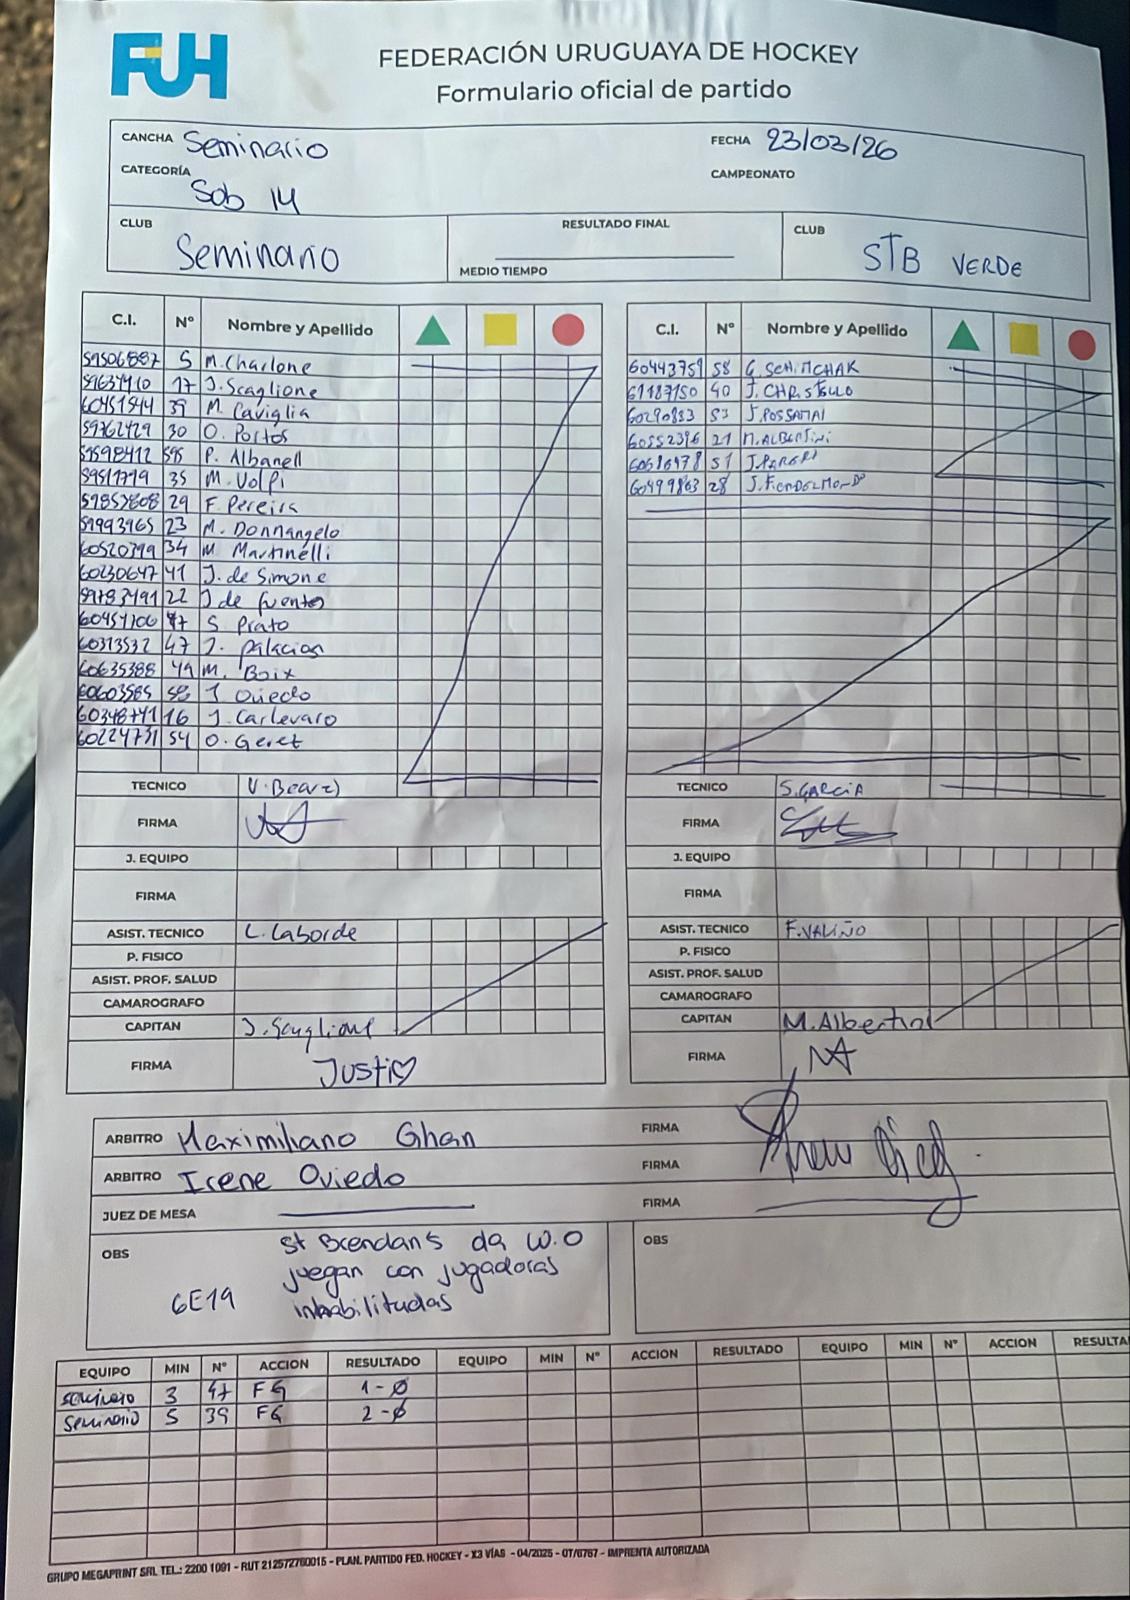 FUH
FEDERACIÓN URUGUAYA DE HOCKEY
Formulario oficial de partido
CANCHA Seminario
FECHA 23/03/26
CATEGORÍA Sob 14
CAMPEONATO
CLUB Seminario
RESULTADO FINAL
MEDIO TIEMPO
CLUB STB VERDE
C.I. Nº Nombre y Apellido
5 M. Charlone
17 J. Scaglione
39 M. Caviglia
59762429 30 O. Portos
P. Albanell
35 M. Volpi
29 F. Pereira
59993965 23 M. Donnangelo
34 M. Martinelli
60230647 41 J. de Simone
22 J de fuentes
S. Prato
60373532 47 J. Palacios
60635388 49 M. Boix
60603585 J Oviedo
60348741 16 J. Carlevaro
60224731 54 O. Geret
TECNICO V. Bearzi
FIRMA
J. EQUIPO
FIRMA
ASIST. TECNICO L. Laborde
P. FISICO
ASIST. PROF. SALUD
CAMAROGRAFO
CAPITAN J. Scaglione
FIRMA Justi
C.I. Nº Nombre y Apellido
60443759 58
61187150 40
60290833 53 J. POSSAMAI
60552396 21 M. ALBERTINI
51
60499863 28
TECNICO S. GARCIA
FIRMA
J. EQUIPO
FIRMA
ASIST. TECNICO F. VALIÑO
P. FISICO
ASIST. PROF. SALUD
CAMAROGRAFO
CAPITAN M. Albertini
FIRMA
ARBITRO Maximiliano Ghan
FIRMA
ARBITRO Irene Oviedo
FIRMA
JUEZ DE MESA
FIRMA
OBS St Brendan's da W.O
juegan con jugadoras
6E19 inhabilitadas
OBS
EQUIPO MIN Nº ACCION RESULTADO EQUIPO MIN Nº ACCION RESULTADO EQUIPO MIN Nº ACCION RESULTA
Seminario 3 47 FG 1-0
Seminario 5 39 FG 2-0
GRUPO MEGAPRINT SRL TEL.: 2200 1091 - RUT 212572760015 - PLAN. PARTIDO FED. HOCKEY - X3 VÍAS - 04/2025 - OT/6767 - IMPRENTA AUTORIZADA